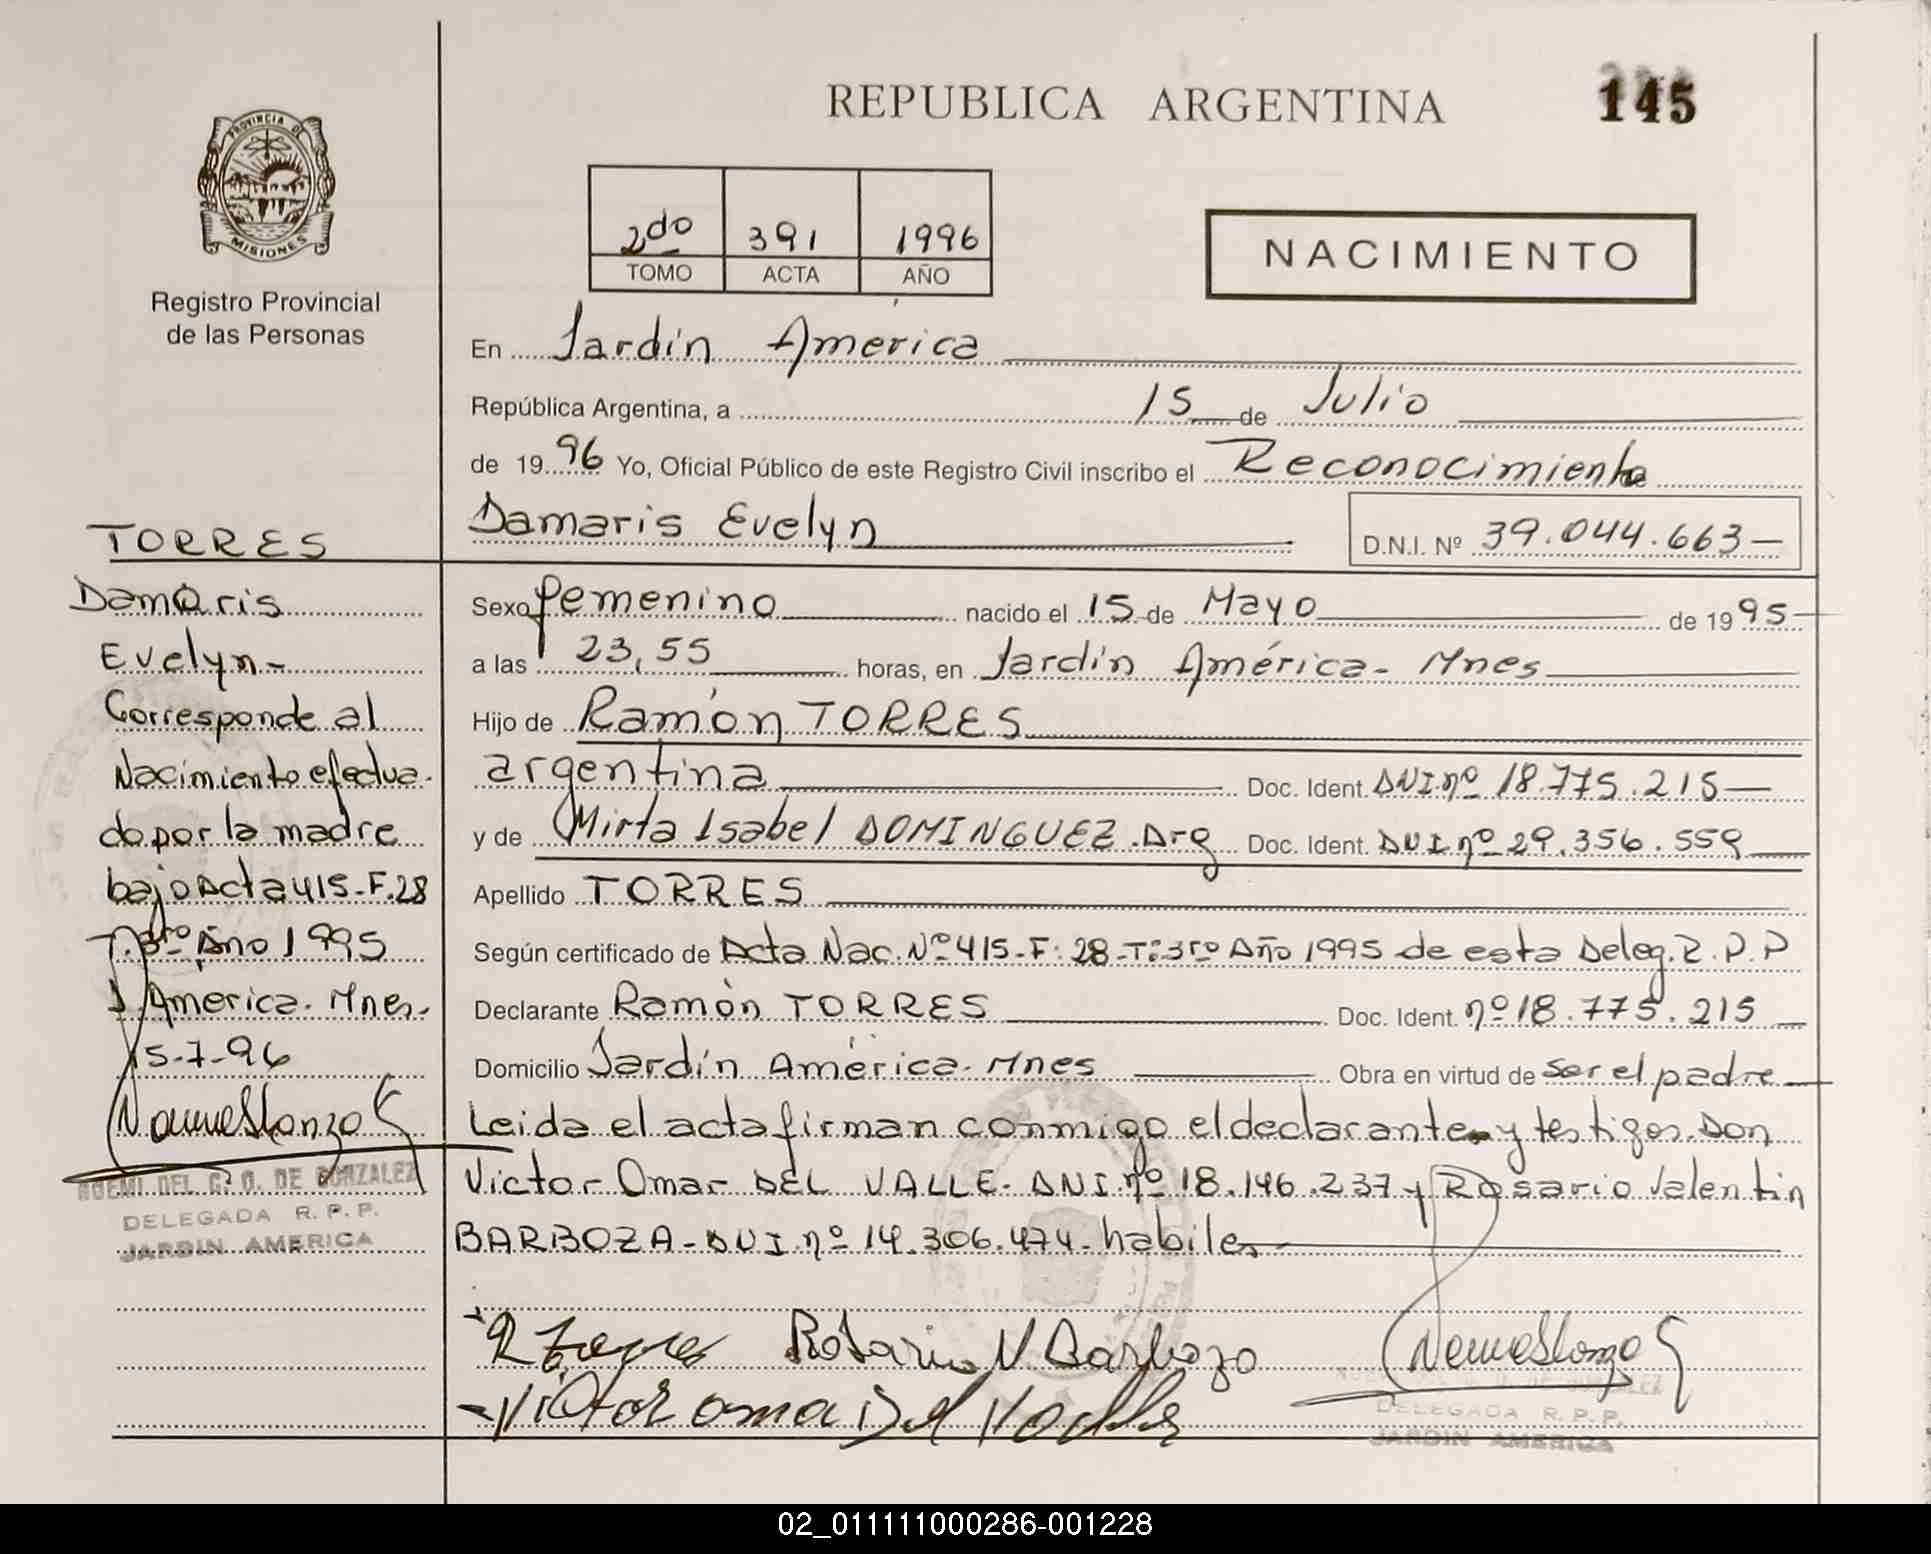 REPUBLICA ARGENTINA
145
PROVINCIA DE
MISIONES
Registro Provincial
de las Personas
2do 391 1996
TOMO ACTA AÑO
NACIMIENTO
En Jardín América
República Argentina, a 15 de Julio
de 1996 Yo, Oficial Público de este Registro Civil inscribo el Reconocimiento
Damaris Evelyn
D.N.I. Nº 39.044.663
Sexo femenino nacido el 15 de Mayo de 1995
a las 23,55 horas, en Jardín América - Mnes
Hijo de Ramón TORRES
argentina Doc. Ident. DNI nº 18.775.215
y de Mirta Isabel DOMINGUEZ. Arg Doc. Ident. DNI nº 29.356.559
Apellido TORRES
Según certificado de Acta Nac. Nº 415-F: 28-T: 3ro Año 1995 de esta Deleg. R.P.P
Declarante Ramón TORRES Doc. Ident. nº 18.775.215
Domicilio Jardín América. Mnes Obra en virtud de ser el padre
Leida el acta firman conmigo el declarante y testigos Don
Victor Omar DEL VALLE. DNI. nº 18.146.237 y Rosario Valentin
BARBOZA - DNI. nº 14.306.474. habiles
Rosario V Barbozo
Victor omar Del Valle
DELEGADA R.P.P.
JARDIN AMERICA
TORRES
Damaris
Evelyn -
Corresponde al
Nacimiento efectua-
do por la madre
bajo Acta 415-F.28
T. 3ro Año 1995
J. America. Mnes.
15-7-96
NOEMI DEL C. O. DE GONZALEZ
DELEGADA R.P.P.
JARDIN AMERICA
02_011111000286-001228